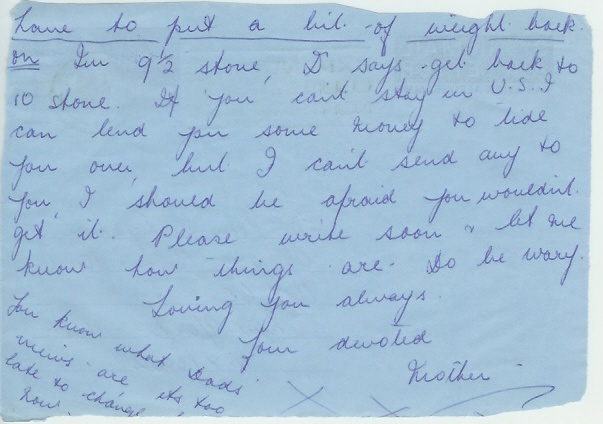 have to put a bit of weight back
on I'm 9½ stone, D says get back to
10 stone. If you can't stay in U.S. I
can lend you some money to tide
you over, but I can't send any to
you, I should be afraid you wouldn't
get it. Please write soon & let me
know how things are. Do be wary.
Loving you always.
Your devoted
Mother
You know what Dads'
views are its too
late to change
now.